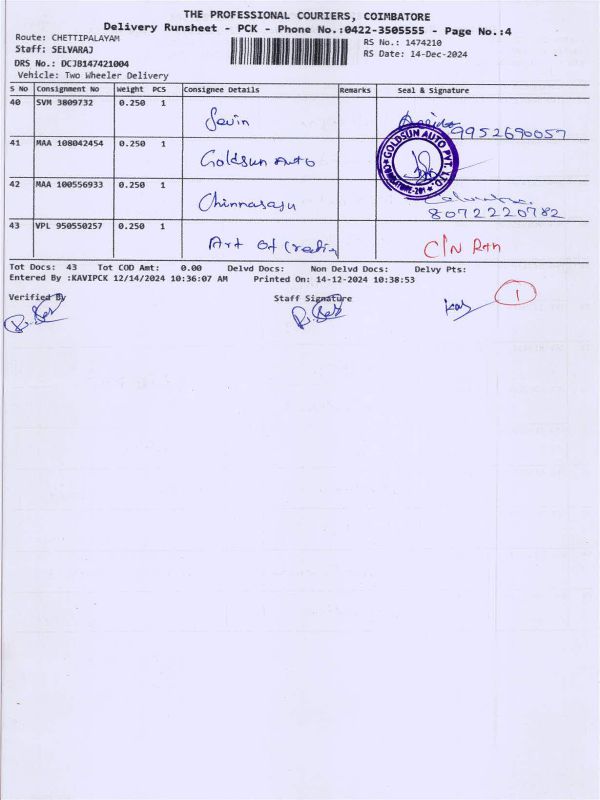 THE PROFESSIONAL COURIERS, COIMBATORE
Delivery Runsheet - PCK - Phone No.:0422-3505555 - Page No.:4
Route: CHETTIPALAYAM RS No.: 1474210
Staff: SELVARAJ RS Date: 14-Dec-2024
DRS No.: DCJB147421004
Vehicle: Two Wheeler Delivery
S No Consignment No Weight PCS Consignee Details Remarks Seal & Signature
40 SVM 3809732 0.250 1 Sevin 9952690057
41 MAA 108042454 0.250 1 Goldsun Auto GOLDSUN AUTO PVT. LTD.
42 MAA 100556933 0.250 1 Chinnasaju 8072220782
43 VPL 950550257 0.250 1 Art Of Creation C/N Rtn
Tot Docs: 43 Tot COD Amt: 0.00 Delvd Docs: Non Delvd Docs: Delvy Pts:
Entered By :KAVIPCK 12/14/2024 10:36:07 AM Printed On: 14-12-2024 10:38:53
Verified By Staff Signature 1